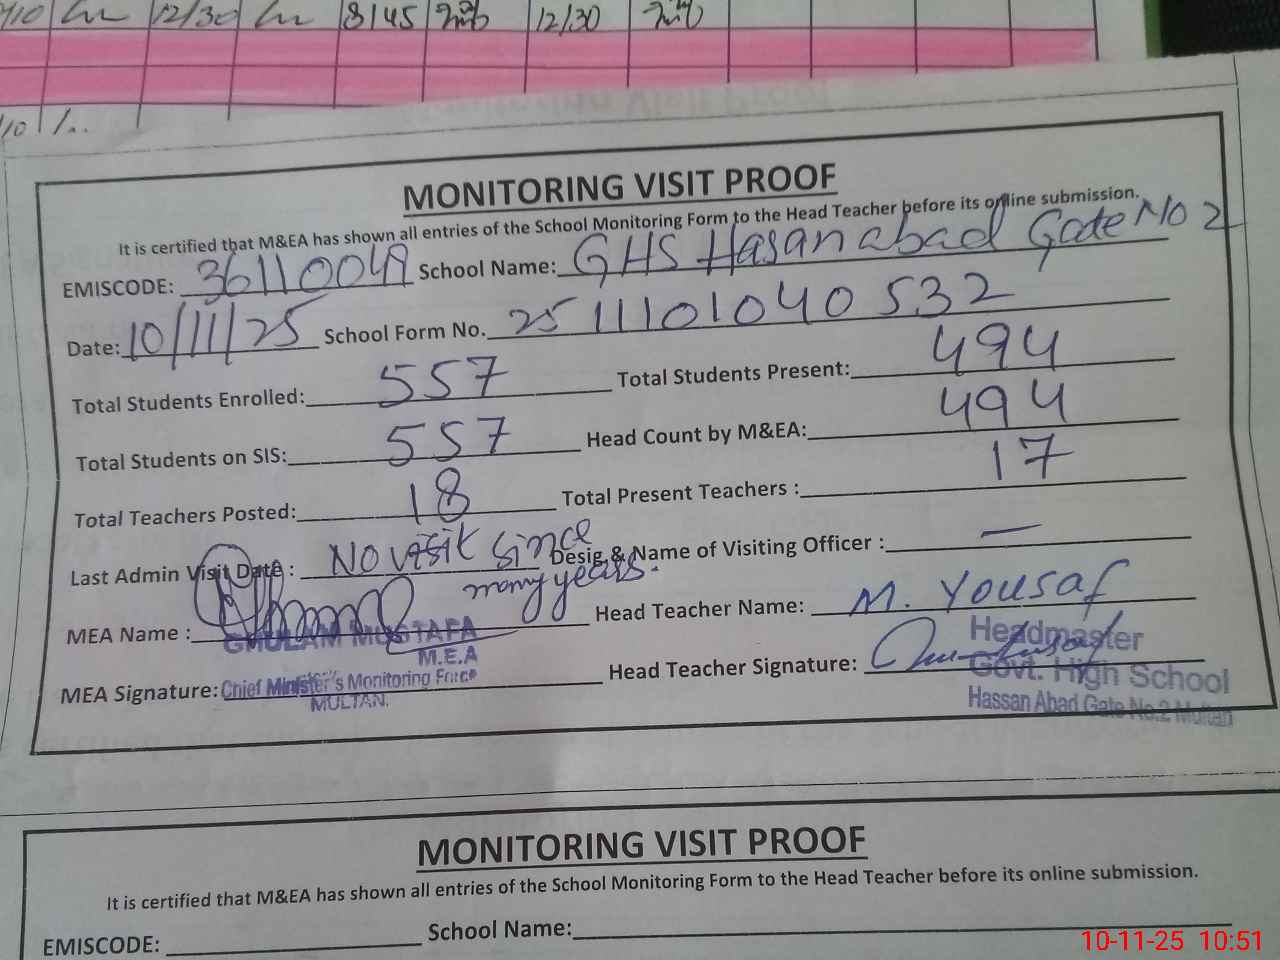 12/30
8/45
12/30
MONITORING VISIT PROOF
It is certified that M&EA has shown all entries of the School Monitoring Form to the Head Teacher before its online submission.
EMISCODE: 36110049 School Name: GHS Hasanabad Gate NO 2
Date: 10/11/25 School Form No. 25 11101040 532
Total Students Enrolled: 557 Total Students Present: 494
Total Students on SIS: 557 Head Count by M&EA: 494
Total Teachers Posted: 18 Total Present Teachers : 17
Last Admin Visit Date : NO visit since many years. Desig & Name of Visiting Officer : —
MEA Name : Head Teacher Name: M. Yousaf
GHULAM MUSTAFA
M.E.A
MEA Signature: Chief Minister's Monitoring Force
MULTAN.
Head Teacher Signature:
Headmaster
Govt. High School
Hassan Abad Gate No.2 Multan
MONITORING VISIT PROOF
It is certified that M&EA has shown all entries of the School Monitoring Form to the Head Teacher before its online submission.
EMISCODE: School Name:
10-11-25 10:51